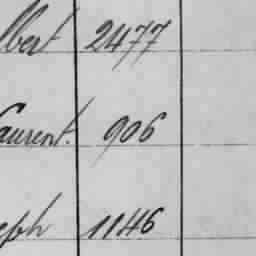 lbert 2477
aurent. 906
eph 1146